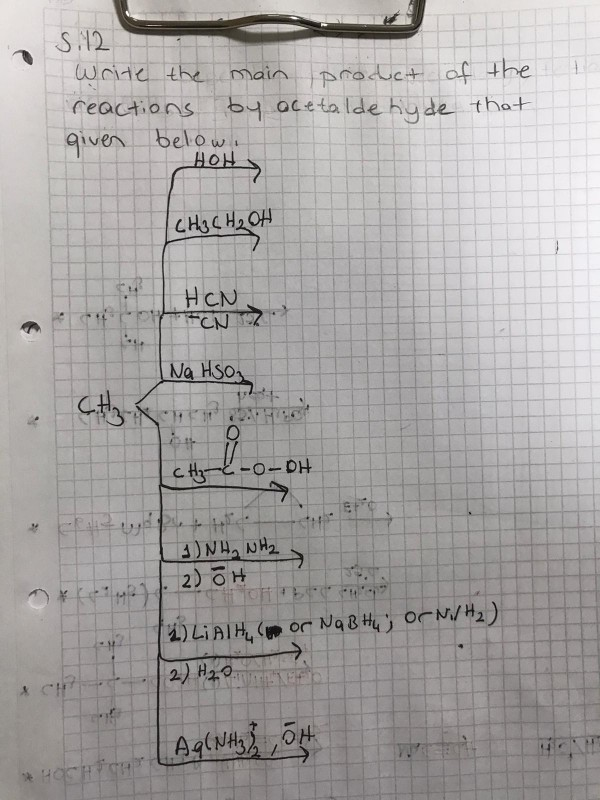 S.12
Write the main product of the
reactions by acetaldehyde that
given below.
HOH
CH3CH2OH
HCN
⁻CN
NaHSO3
CH3
O
CH3-C-O-OH
1) NH2NH2
2) ŌH
1) LiAlH4 ( or NaBH4; or Ni/H2)
2) H2O
Ag(NH3)2⁺, ŌH